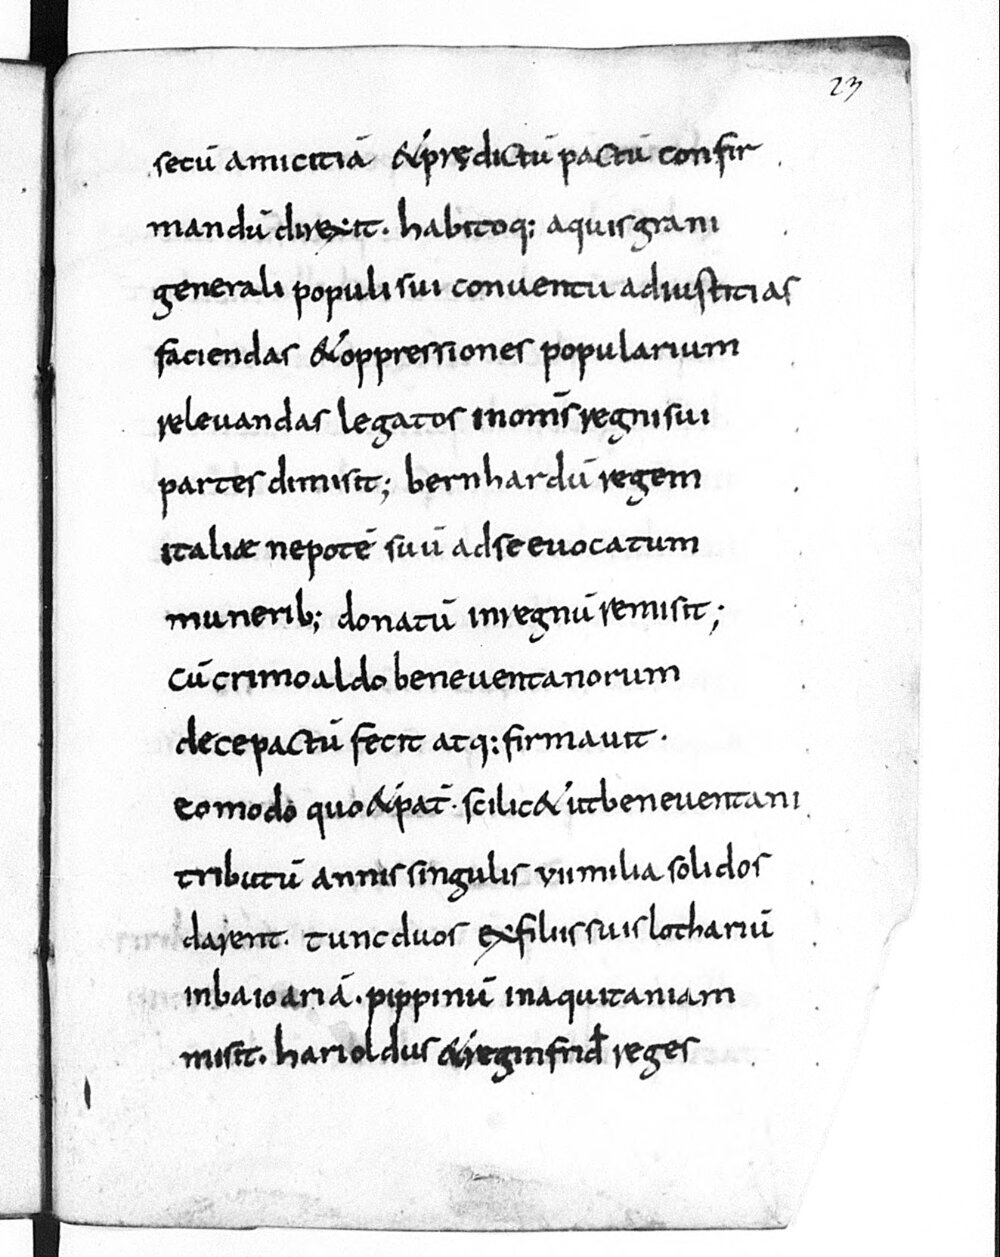 23
secū amicitiā &prędictū pactū confir
mandū direxit. habitoq; aquisgrani
generali populi sui conuentu adiustitias
faciendas &oppressiones popularium
releuandas legatos inom̄s regni sui
partes dimisit; bernhardū regem
italiæ nepotē suū adse euocatum
munerib; donatū inregnū remisit;
cū crimoaldo beneuentanorum
duce pactū fecit atq; firmauit.
eo modo quo &pat̄. scilic& ut beneuentani
tributū annis singulis vii milia solidos
darent. tunc duos ex filiis suis lothariū
inbaioariā. pippinū inaquitaniam
misit. harioldus &reginfrid reges